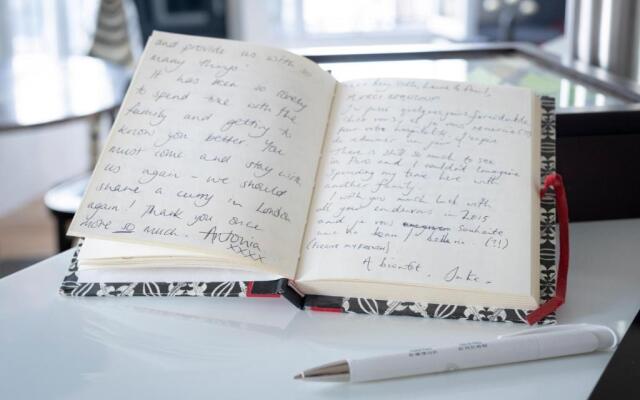 and provide us with so
many things!
It has been so lovely
to spend time with the
family and getting to
know you better. You
must come and stay with
us again - we should
share a curry in London
again! Thank you once
more so much. Antonia
xxxx
family
merci beaucoup
chez vous et je vous remercie
pour votre hospitalité
un jour
There is still so much to see
in Paris and I couldn't imagine
spending my time here with
another family.
I wish you much luck with
all your endeavours in 2015
and je vous souhaite
(!?!)
A bientôt, Jake.